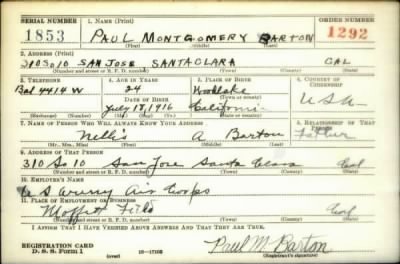 SERIAL NUMBER 1. NAME (Print) ORDER NUMBER
1853 PAUL MONTGOMERY BARTON 1292
(First) (Middle) (Last)
2. ADDRESS (Print)
310 So 10 SAN JOSE SANTA CLARA CAL
(Number and street or R. F. D. number) (Town) (County) (State)
3. TELEPHONE 4. AGE IN YEARS 5. PLACE OF BIRTH 6. COUNTRY OF CITIZENSHIP
Bal 4414 W 24 Woodlake
DATE OF BIRTH (Town or county)
July 18, 1916 California U S A
(Exchange) (Number) (Mo.) (Day) (Yr.) (State or country)
7. NAME OF PERSON WHO WILL ALWAYS KNOW YOUR ADDRESS 8. RELATIONSHIP OF THAT PERSON
A Barton Father
(Mr., Mrs., Miss) (First) (Middle) (Last)
9. ADDRESS OF THAT PERSON
310 So 10 San Jose Santa Clara Cal
(Number and street or R. F. D. number) (Town) (County) (State)
10. EMPLOYER'S NAME
U S Army Air Corps
11. PLACE OF EMPLOYMENT OR BUSINESS
Moffett Field Cal
(Number and street or R. F. D. number) (Town) (County) (State)
I AFFIRM THAT I HAVE VERIFIED ABOVE ANSWERS AND THAT THEY ARE TRUE.
REGISTRATION CARD
D. S. S. Form 1 (over) 16—17105 Paul M. Barton
(Registrant's signature)